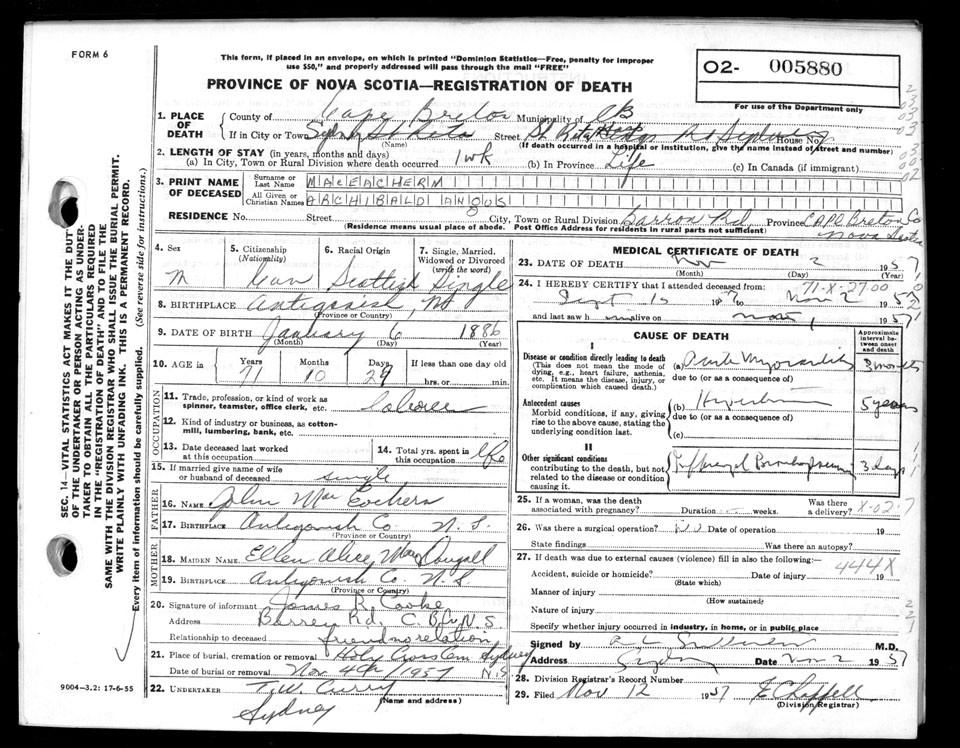 FORM 6
This form, if placed in an envelope, on which is printed "Dominion Statistics—Free, penalty for improper
use $50," and properly addressed will pass through the mail "FREE"
PROVINCE OF NOVA SCOTIA—REGISTRATION OF DEATH
O2- 005880
For use of the Department only
1. PLACE OF DEATH
County of Cape Breton Municipality of CB
If in City or Town Sydney Street St Rita Hosp Sydney House No.
(Name) (If death occurred in a hospital or institution, give the name instead of street and number)
2. LENGTH OF STAY (in years, months and days)
(a) In City, Town or Rural Division where death occurred 1 wk (b) In Province Life (c) In Canada (if immigrant)
3. PRINT NAME OF DECEASED
Surname or Last Name MACEACHERN
All Given or Christian Names ARCHIBALD ANGUS
RESIDENCE No. Street City, Town or Rural Division Barron Rd Province CAPE Breton Co
Nova Scotia
(Residence means usual place of abode. Post Office Address for residents in rural parts not sufficient)
4. Sex M
5. Citizenship (Nationality) Can
6. Racial Origin Scottish
7. Single, Married, Widowed or Divorced (write the word) Single
8. BIRTHPLACE Antigonish, NS
(Province or Country)
9. DATE OF BIRTH January 6 1886
(Month) (Day) (Year)
10. AGE in Years 71 Months 10 Days 27 If less than one day old
hrs. or min.
OCCUPATION
11. Trade, profession, or kind of work as
spinner, teamster, office clerk, etc. Laborer
12. Kind of industry or business, as cotton-
mill, lumbering, bank, etc.
13. Date deceased last worked
at this occupation
14. Total yrs. spent in
this occupation life
15. If married give name of wife
or husband of deceased single
FATHER
16. NAME John Mac Eachern
17. BIRTHPLACE Antigonish Co. N.S.
(Province or Country)
MOTHER
18. MAIDEN NAME Ellen Alice MacDougall
19. BIRTHPLACE Antigonish Co. N.S
(Province or Country)
20. Signature of informant James R. Cooke
Address Barren Rd. C.B. N.S
Relationship to deceased friend no relation
21. Place of burial, cremation or removal Holy Cross Cem Sydney
Date of burial or removal Nov 4th/1957 N.S
22. UNDERTAKER T.W. Curry
(Name and address)
Sydney
MEDICAL CERTIFICATE OF DEATH
23. DATE OF DEATH Nov 2 1957
(Month) (Day) (Year)
71-X-2700
24. I HEREBY CERTIFY that I attended deceased from:
Sept 15 1957 to Nov 2 1957
and last saw him alive on Nov 1 1957
CAUSE OF DEATH
Approximate interval between onset and death
I
Disease or condition directly leading to death
(This does not mean the mode of
dying, e.g., heart failure, asthenia,
etc. It means the disease, injury, or
complication which caused death.)
(a) Acute Myocarditis 3 months
due to (or as a consequence of)
Antecedent causes
Morbid conditions, if any, giving
rise to the above cause, stating the
underlying condition last.
(b) Hypertension 5 years
due to (or as a consequence of)
(c)
II
Other significant conditions
contributing to the death, but not
related to the disease or condition
causing it.
Bronchopneumonia 3 days
25. If a woman, was the death
associated with pregnancy? Duration weeks. Was there a delivery? X-02-7
26. Was there a surgical operation? No Date of operation 19
State findings Was there an autopsy?
27. If death was due to external causes (violence) fill in also the following:
444X
Accident, suicide or homicide? Date of injury 19
(State which)
Manner of injury
(How sustained)
Nature of injury
Specify whether injury occurred in industry, in home, or in public place
Signed by M.D.
Address Sydney Date Nov 2 1957
28. Division Registrar's Record Number
29. Filed Nov 12 1957 E Chappell
(Division Registrar)
SEC. 14—VITAL STATISTICS ACT MAKES IT THE DUTY
OF THE UNDERTAKER OR PERSON ACTING AS UNDER-
TAKER TO OBTAIN ALL THE PARTICULARS REQUIRED
IN THE "REGISTRATION OF DEATH" AND TO FILE THE
SAME WITH THE DIVISION REGISTRAR WHO SHALL ISSUE THE BURIAL PERMIT.
WRITE PLAINLY WITH UNFADING INK. THIS IS A PERMANENT RECORD.
Every item of information should be carefully supplied. (See reverse side for instructions.)
9004—3.2: 17-6-55